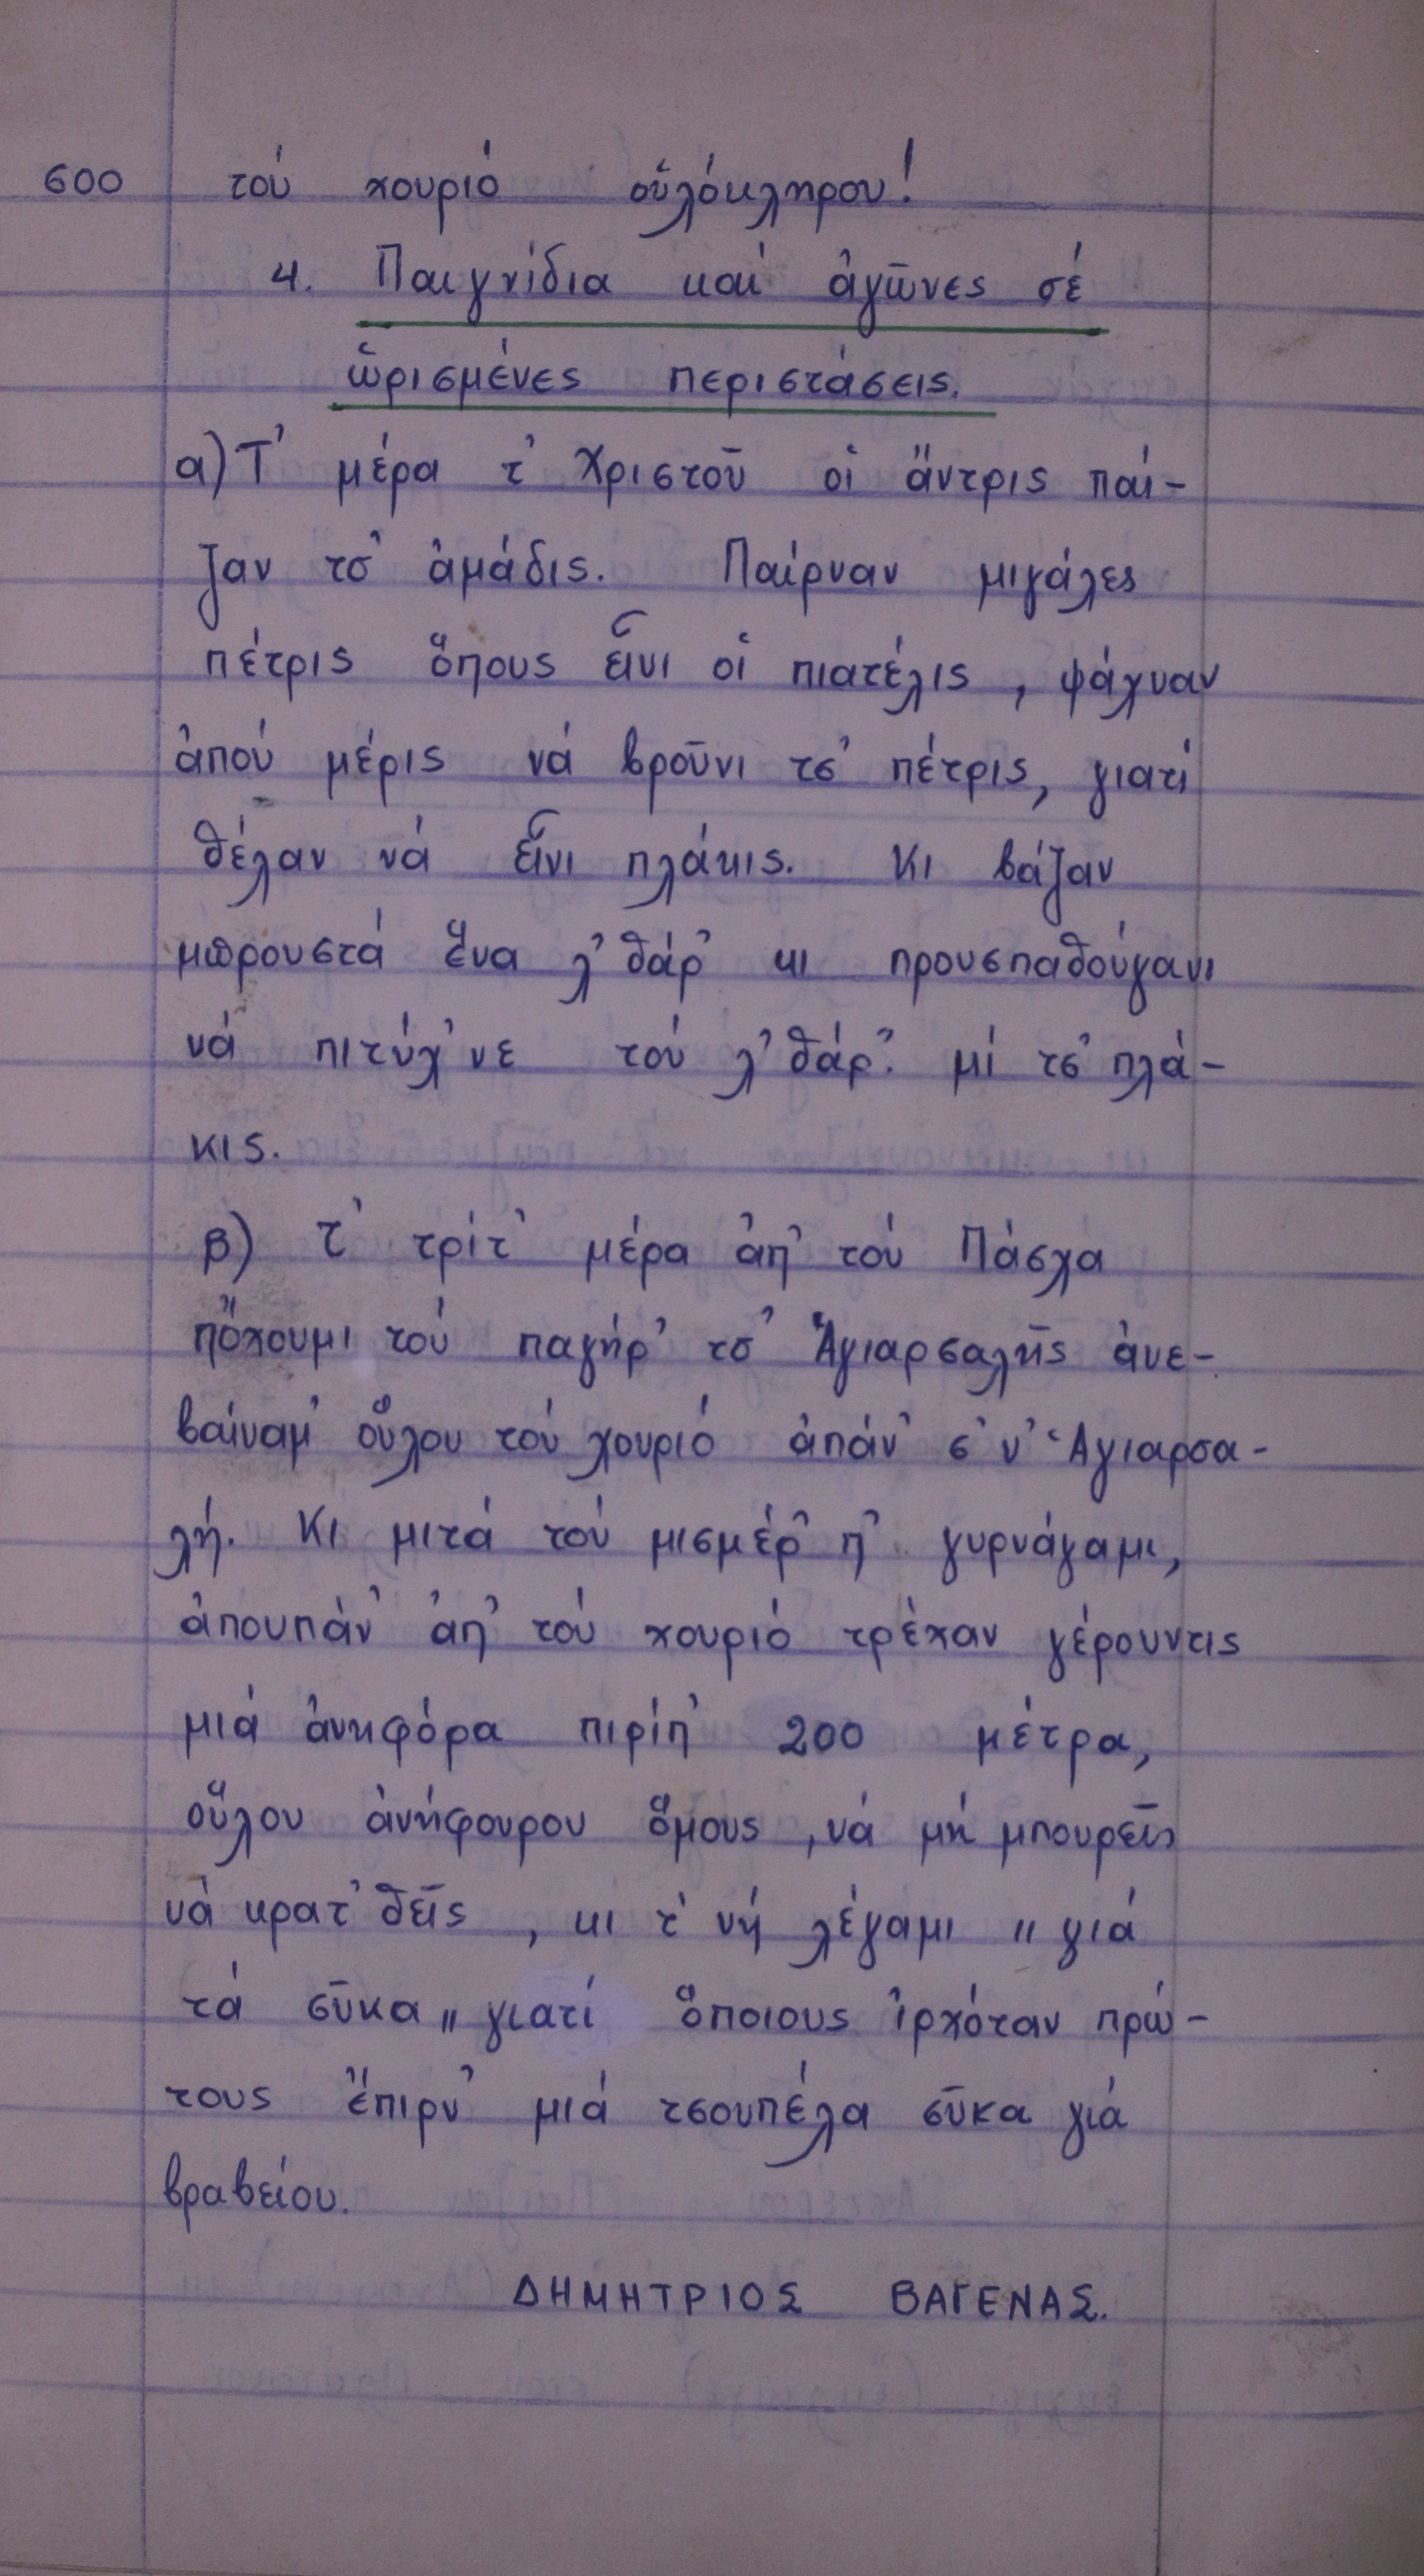 600 τού χουριό οὑλόκληρου!
4. Παιγνίδια καί ἀγῶνες σέ
ὡρισμένες περιστάσεις.
α) Τ' μέρα τ' Χριστοῦ οἱ ἄντρις παί-
ζαν τσ' ἀμάδις. Παίρναν μιγάλες
πέτρις ὅπους εἶνι οἱ πιατέλις, ψάχναν
ἀπού μέρις νά βροῦνι τσ' πέτρις, γιατί
θέλαν νά εἶνι πλάκις. Κι βάζαν
μπρουστά ἕνα λ'θάρ' κι προυσπαθούγανι
νά πιτύχ'νε τού λ'θάρ' μί τσ' πλά-
κις.
β) Τ' τρίτ' μέρα ἀπ' τού Πάσχα
πὄχουμι τού παγήρ' τσ' Ἁγιαρσαλῆς ἀνε-
βαίναμ' οὕλου τού χουριό ἀπάν' σ' ν' Ἁγιαρσα-
λή. Κι μιτά τού μισμέρ' π' γυρνάγαμι,
ἀπουπάν' ἀπ' τού χουριό τρέχαν γέρουντις
μιά ἀνηφόρα πιρίπ' 200 μέτρα,
οὕλου ἀνήφουρου ὅμους, νά μή μπουρεῖς
νά κρατ'θεῖς, κι τ' νή λέγαμι "γιά
τά σῦκα" γιατί ὅποιους ἰρχόταν πρώ-
τους ἔπιρν' μιά τσουπέλα σῦκα γιά
βραβείου.
ΔΗΜΗΤΡΙΟΣ ΒΑΓΕΝΑΣ.